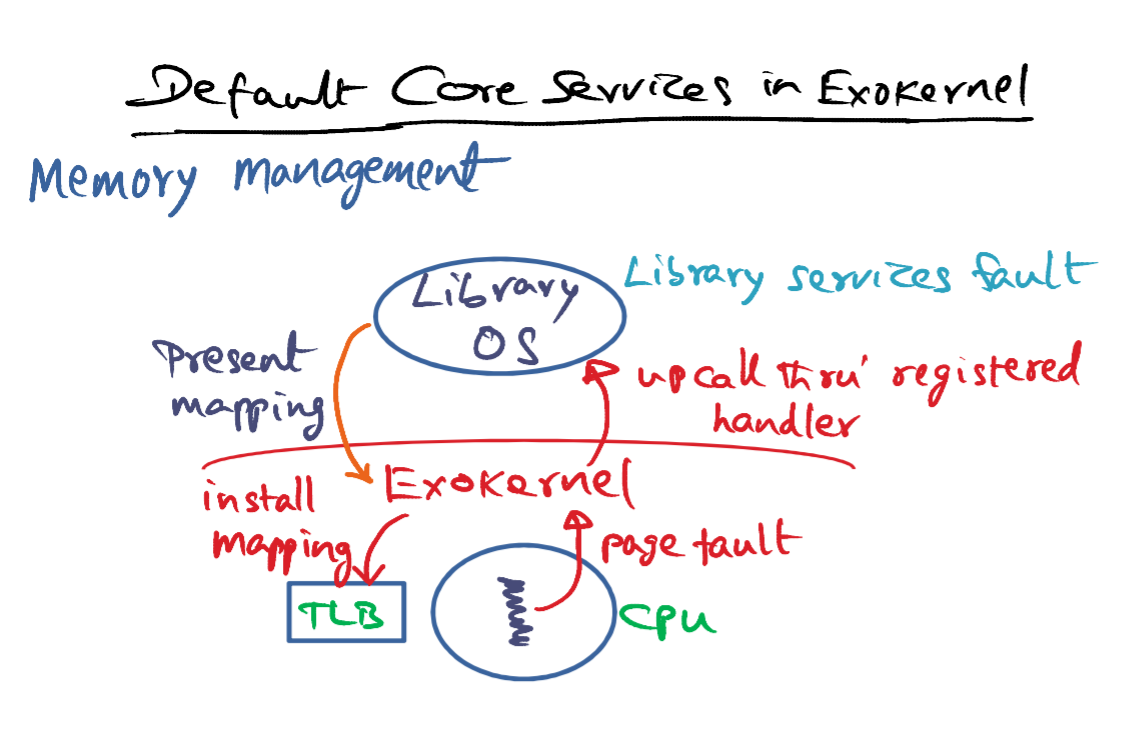 Default Core Services in Exokernel
Memory management
Library
OS
Library services fault
Present
mapping
upcall thru' registered
handler
Exokernel
install
mapping
page fault
TLB
CPU